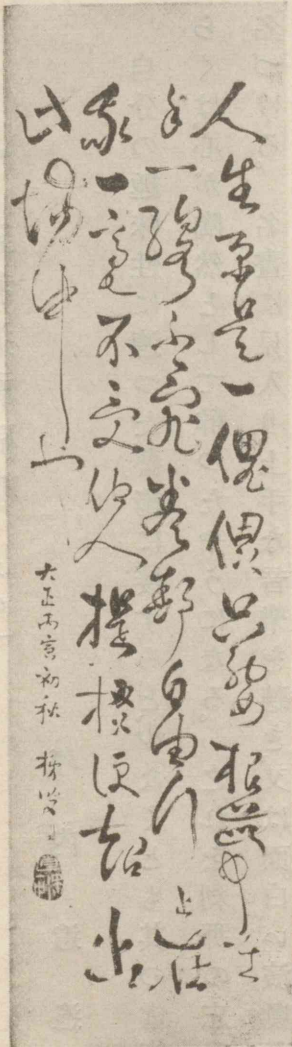 人生原是一傀儡只要根蒂在
手一線不亂卷舒自由行止在
我一毫不受他人提掇便超出
此場中矣
大正丙寅初秋